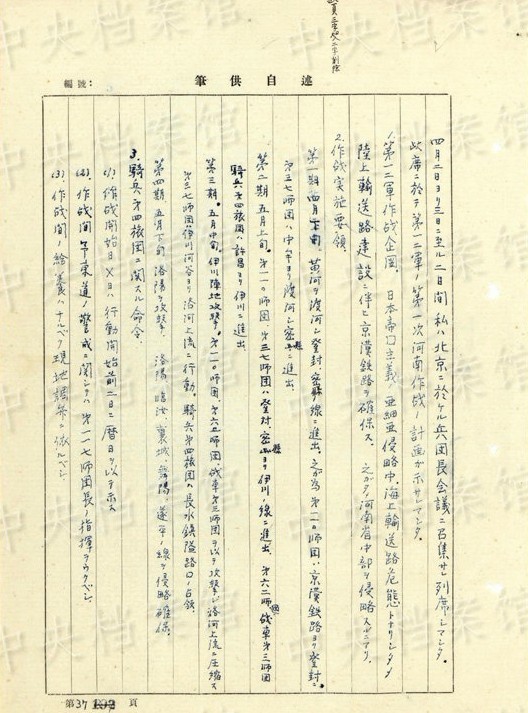 述自供筆
編號:
四月二日ヨリ三日ニ至ル二日間 私ハ北京ニ於ケル兵団長会議ニ召集サレ列席シマシタ。
此席ニ於テ第一二軍ノ第一次河南作戦ノ計画が示サレマシタ。
1. 第一二軍作战企図. 日本帝国主義ノ亜細亜侵略中、海上輸送路危態トナリシタメ
陸上輸送路建設ニ伴ヒ京漢鉄路ヲ確保ス. 之ガタメ河南省中部ヲ侵略スルニアリ.
2. 作战実施要領.
第一期 四月下旬 黄河ヲ渡河シ登封 密縣ノ線ニ進出. 之ガ為 第一一〇師団ハ京漢鉄路ヨリ登封ニ.
第三七師団ハ中牟ヨリ渡河シ密縣ニ進出.
第二期 五月上旬. 第一一〇師団 第三七師団ハ登封、密縣ヨリ伊川ノ線ニ進出. 第六二師團 战車第三師団
騎兵第四旅團ハ許昌ヨリ伊川ニ進出.
第三期. 五月中旬. 伊川陣地攻撃. 第一一〇師団. 第六二師団 战車第三師団ヲ以テ攻撃シ 洛河上流ニ圧縮ス
第三七師団 伊川河谷ヨリ洛河上流ニ行動. 騎兵第四旅團ハ長水鎮隘路口ノ占領.
第四期. 五月下旬 洛陽ヲ攻撃. 洛陽、臨汝、襄城、舞陽、遂平ノ線ヲ侵略確保.
3. 騎兵第四旅團ニ関スル命令.
(1) 作战開始日X日ハ行動開始前二日ニ暦日ヲ以テ示ス
(2) 作战間 ノ警戒ニ関シテハ第一一七師団長ノ指揮ヲウクベシ.
(3) 作战間ノ給養ハナルベク現地調弁ニ依ルベシ.
第37頁